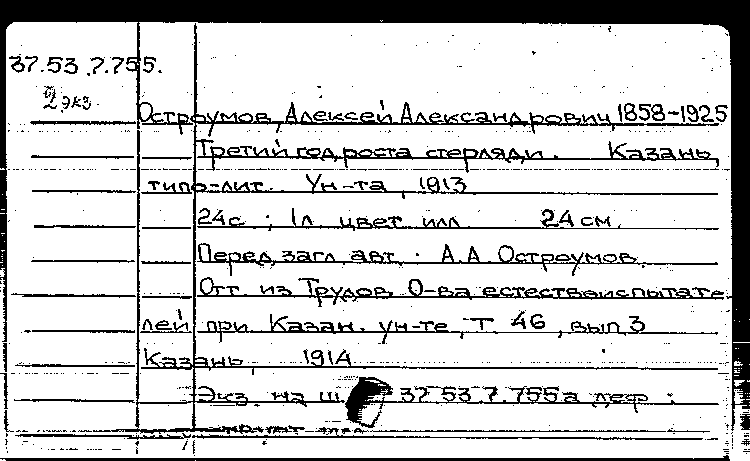 37.53.7.755.
2 экз.
Остроумов, Алексей Александрович, 1858-1925
Третий год роста стерляди. Казань,
типо-лит. Ун-та, 1913
24с.; 1л. цвет. илл. 24 см.
Перед загл. авт.: А.А. Остроумов.
Отт. из Трудов О-ва естествоиспытате-
лей при Казан. ун-те, Т. 46, вып. 3
Казань, 1914
Экз. на ш. 37.53.7.755а деф.: